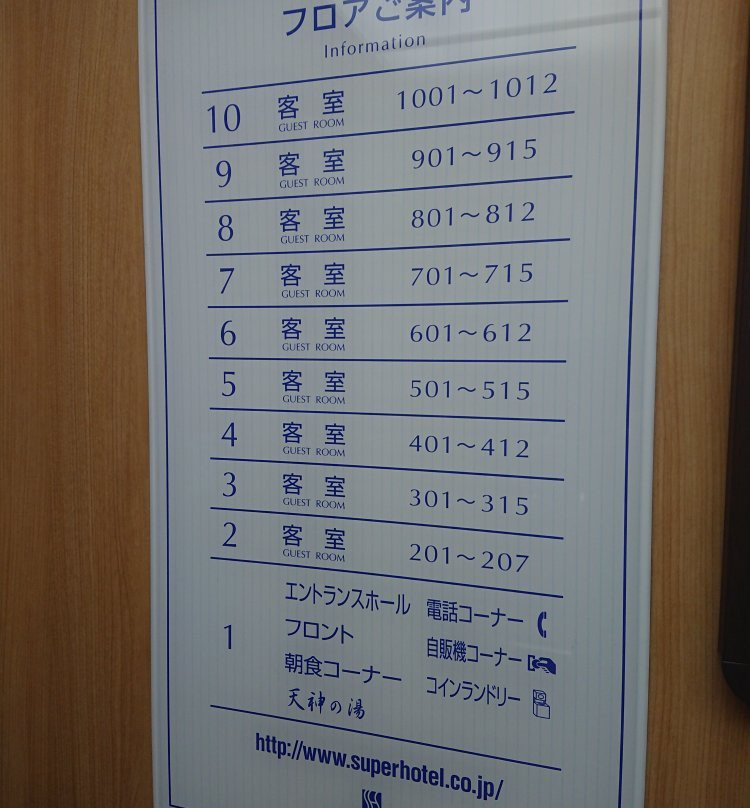 フロアご案内
Information
10 客室 1001～1012
GUEST ROOM
9 客室 901～915
GUEST ROOM
8 客室 801～812
GUEST ROOM
7 客室 701～715
GUEST ROOM
6 客室 601～612
GUEST ROOM
5 客室 501～515
GUEST ROOM
4 客室 401～412
GUEST ROOM
3 客室 301～315
GUEST ROOM
2 客室 201～207
GUEST ROOM
1
エントランスホール
フロント
朝食コーナー
天神の湯
電話コーナー
自販機コーナー
コインランドリー
http://www.superhotel.co.jp/